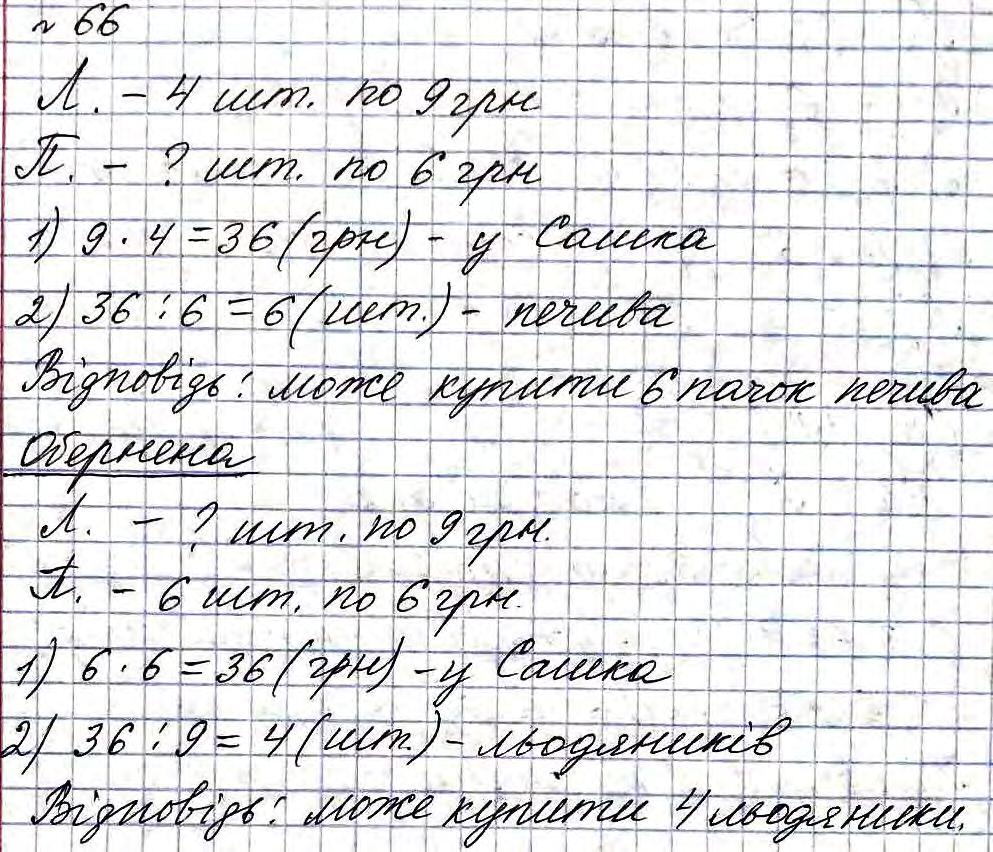 № 66
Л. – 4 шт. по 9 грн
П. – ? шт. по 6 грн
1) 9 · 4 = 36 (грн) – у Сашка
2) 36 : 6 = 6 (шт.) – печива
Відповідь: може купити 6 пачок печива
Обернена
Л. – ? шт. по 9 грн.
П. – 6 шт. по 6 грн.
1) 6 · 6 = 36 (грн) – у Сашка
2) 36 : 9 = 4 (шт.) – льодяників
Відповідь: може купити 4 льодяники.